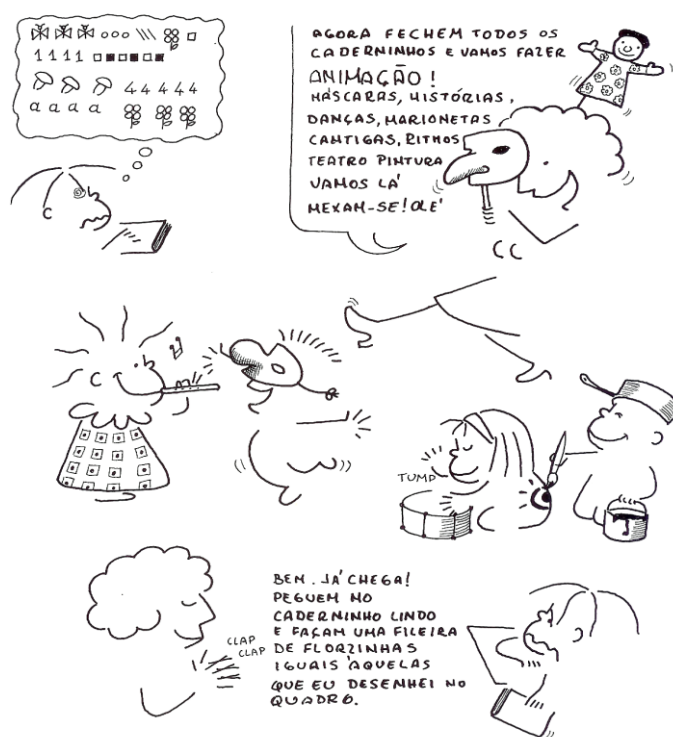 1 1 1 1
4 4 4 4 4
a a a a
AGORA FECHEM TODOS OS
CADERNINHOS E VAMOS FAZER
ANIMAÇÃO!
MÁSCARAS, HISTÓRIAS,
DANÇAS, MARIONETAS
CANTIGAS, RITMOS
TEATRO PINTURA
VAMOS LÁ
MEXAM-SE! OLÉ
TUMP
CLAP
CLAP
BEM. JÁ CHEGA!
PEGUEM NO
CADERNINHO LINDO
E FAÇAM UMA FILEIRA
DE FLORZINHAS
IGUAIS ÀQUELAS
QUE EU DESENHEI NO
QUADRO.